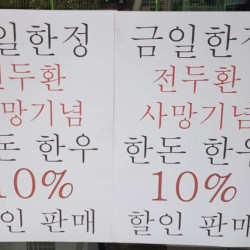 일한정
전두환
사망기념
한돈 한우
10%
할인 판매
금일한정
전두환
사망기념
한돈 한우
10%
할인 판매